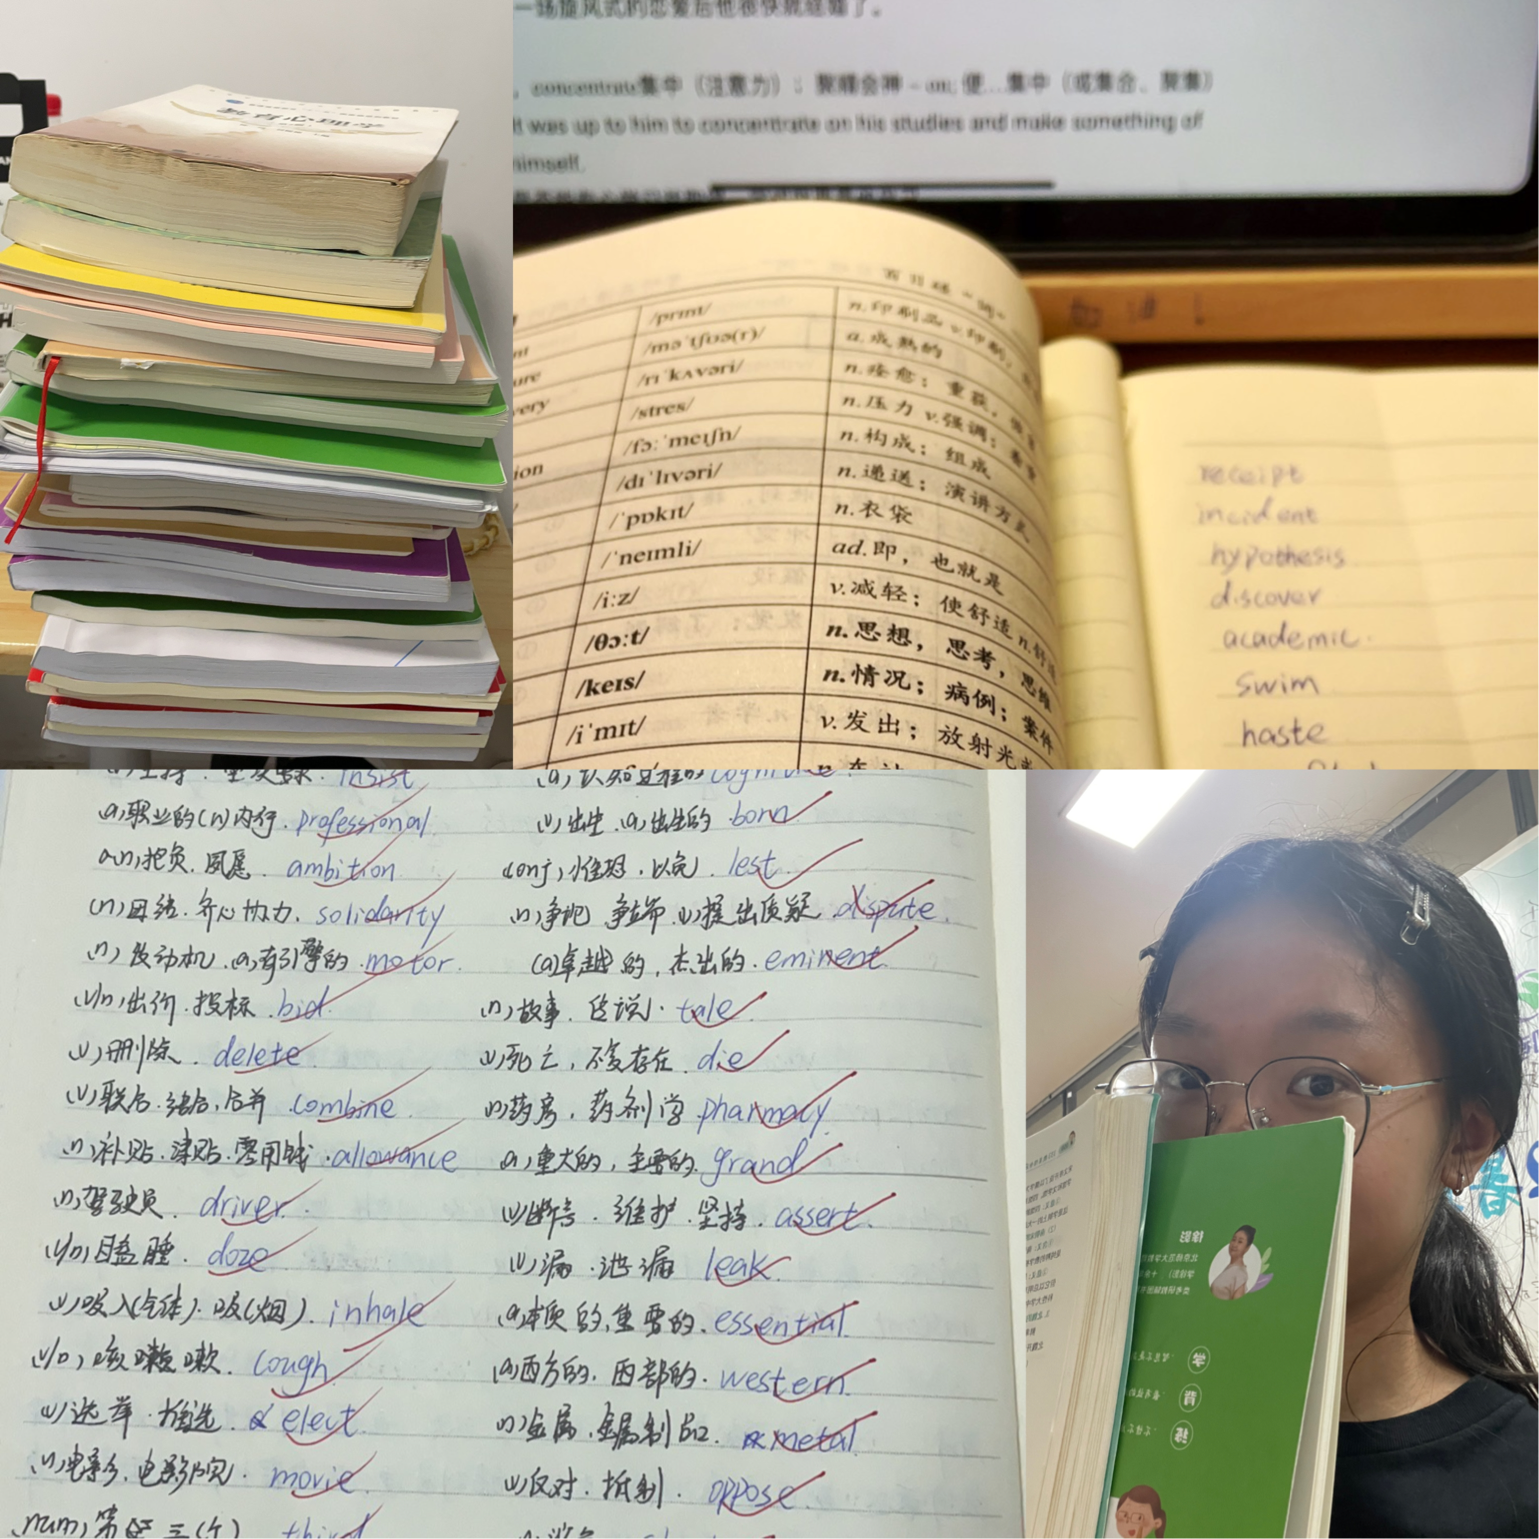 考研心理学
一场旋风式的恋爱后他很快就结婚了。
concentrate集中（注意力）；聚精会神－on; 使…集中（或集合、聚集）
It was up to him to concentrate on his studies and make something of
himself.
/prɪnt/ n.印刷品 v.印刷；
/məˈtʃʊə(r)/ a.成熟的
/rɪˈkʌvəri/ n.痊愈；重获，
/stres/ n.压力 v.强调；
/fɔːˈmeɪʃn/ n.构成；组成
/dɪˈlɪvəri/ n.递送；演讲方式
/ˈpɒkɪt/ n.衣袋
/ˈneɪmli/ ad.即，也就是
/iːz/ v.减轻；使舒适 n.舒适
/θɔːt/ n.思想，思考，思维
/keɪs/ n.情况；病例；案件
/iˈmɪt/ v.发出；放射光
receipt
incident
hypothesis
discover
academic
swim
haste
insist
(a)职业的(n)内行. professional
(n)抱负.夙愿. ambition
(n)团结.齐心协力. solidarity
(n)发动机.(a)有引擎的. motor.
(v/n)出价.投标. bid.
(v)删除. delete.
(v)联合.结合.合并 combine.
(n)补贴.津贴.零用钱.allowance
(n)驾驶员. driver.
(v/n)瞌睡. doze
(v)吸入(气体).吸(烟). inhale
(v/n)咳嗽嗽. cough
(v)选举.推选. elect.
(n)电影.电影院. movie.
num)第三(个) third
(v)出生.(a)出生的.born
conj)惟恐.以免. lest
(n)争论 争端 (v)提出质疑.dispute.
(a)卓越的,杰出的.eminent.
(n)故事.传说.tale.
(v)死亡,不复存在. die
(n)药房.药剂学 pharmacy.
(a)重大的,主要的.grand
(v)断言.维护.坚持.assert.
(v)漏.泄漏 leak.
(a)本质的,重要的.essential.
(a)西方的.西部的.western.
(n)金属.金属制品. metal.
(v)反对.抵制. oppose.
徐影
学
背
练